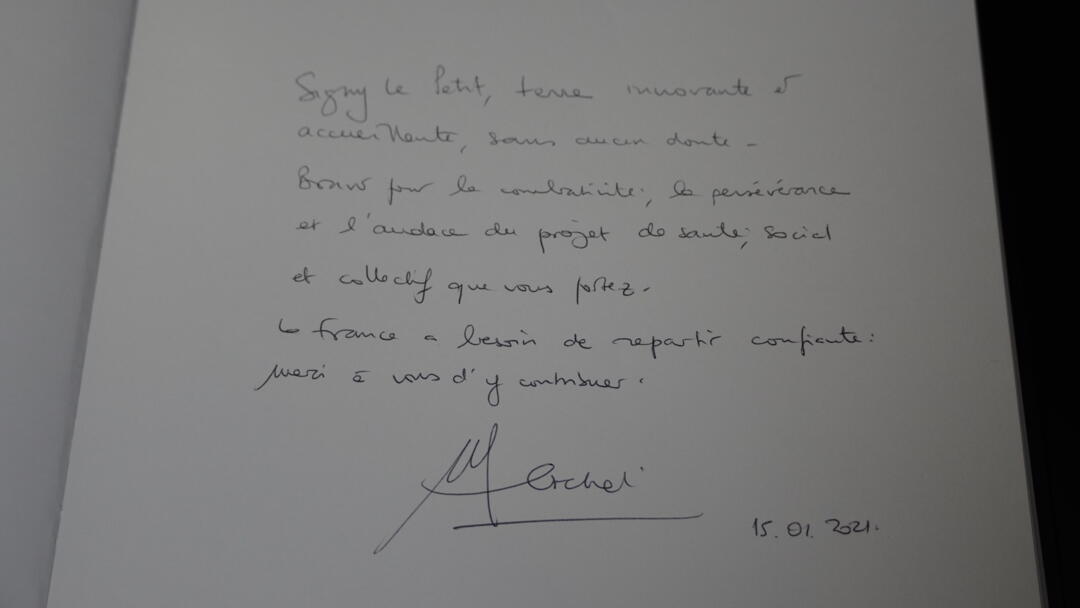 Signy le Petit, terre innovante et
accueillante, sans aucun doute -
Bravo pour la combativité, la persévérance
et l'audace du projet de santé, social
et collectif que vous portez.
La France a besoin de repartir confiante :
merci à vous d'y contribuer.
15.01.2021.